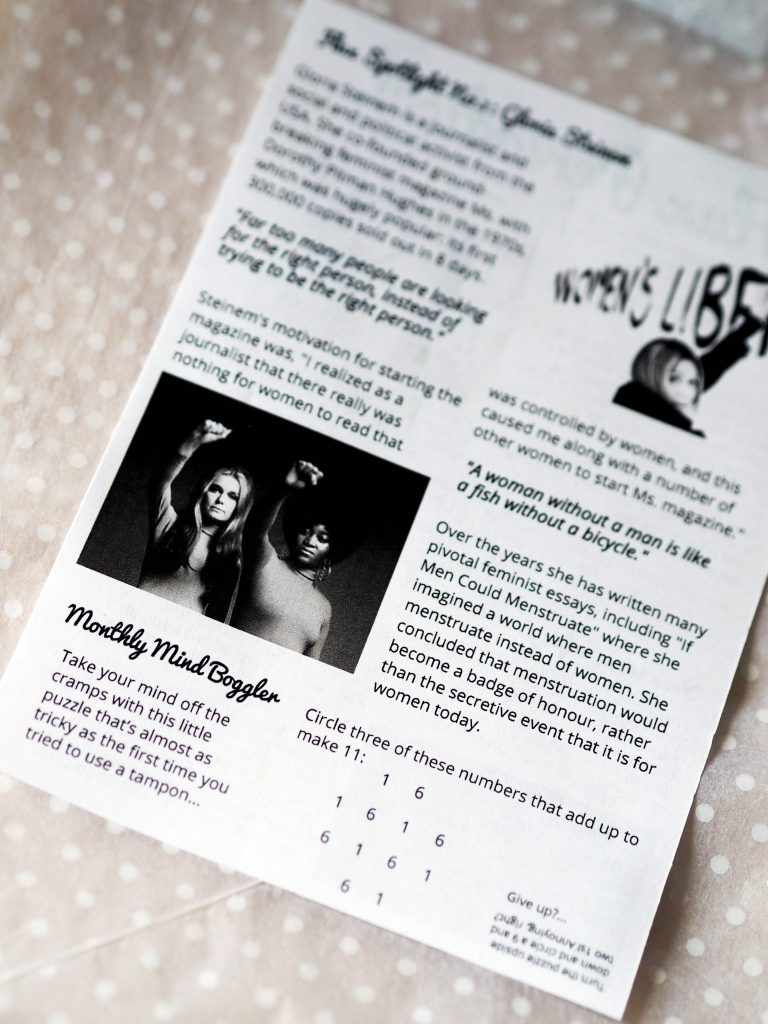 Flow Spotlight No.2: Gloria Steinem
Gloria Steinem is a journalist and
social and political activist from the
USA. She co-founded ground-
breaking feminist magazine Ms. with
Dorothy Pitman Hughes in the 1970s,
which was hugely popular; its first
300,000 copies sold out in 8 days.
"Far too many people are looking
for the right person, instead of
trying to be the right person."
Steinem's motivation for starting the
magazine was, "I realized as a
journalist that there really was
nothing for women to read that
WOMEN'S LIBE
was controlled by women, and this
caused me along with a number of
other women to start Ms. magazine."
"A woman without a man is like
a fish without a bicycle."
Over the years she has written many
pivotal feminist essays, including "If
Men Could Menstruate" where she
imagined a world where men
menstruate instead of women. She
concluded that menstruation would
become a badge of honour, rather
than the secretive event that it is for
women today.
Monthly Mind Boggler
Take your mind off the
cramps with this little
puzzle that's almost as
tricky as the first time you
tried to use a tampon...
Circle three of these numbers that add up to
make 11:
1 6
1 6 1 6
6 1 6 1
6 1
Give up?...
Turn the puzzle upside
down and circle a 9 and
two 1s! Annoying, right?